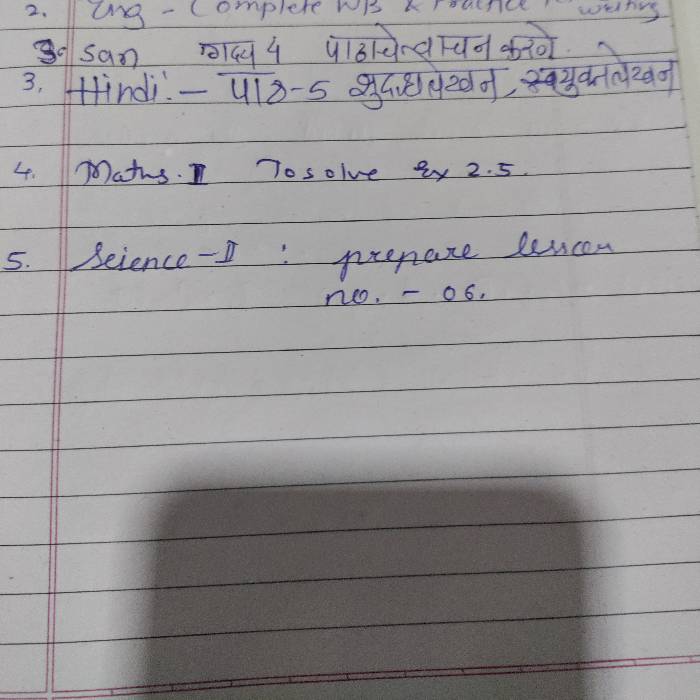 2. Eng - Complete WB & Practice writing
3. San गद्य 4 पाठाचे वाचन करणे.
3. Hindi :- पाठ-5 शुद्धलेखन,
4. Maths. II To solve Ex 2.5.
5. Science-II : prepare lesson
no. - 06.